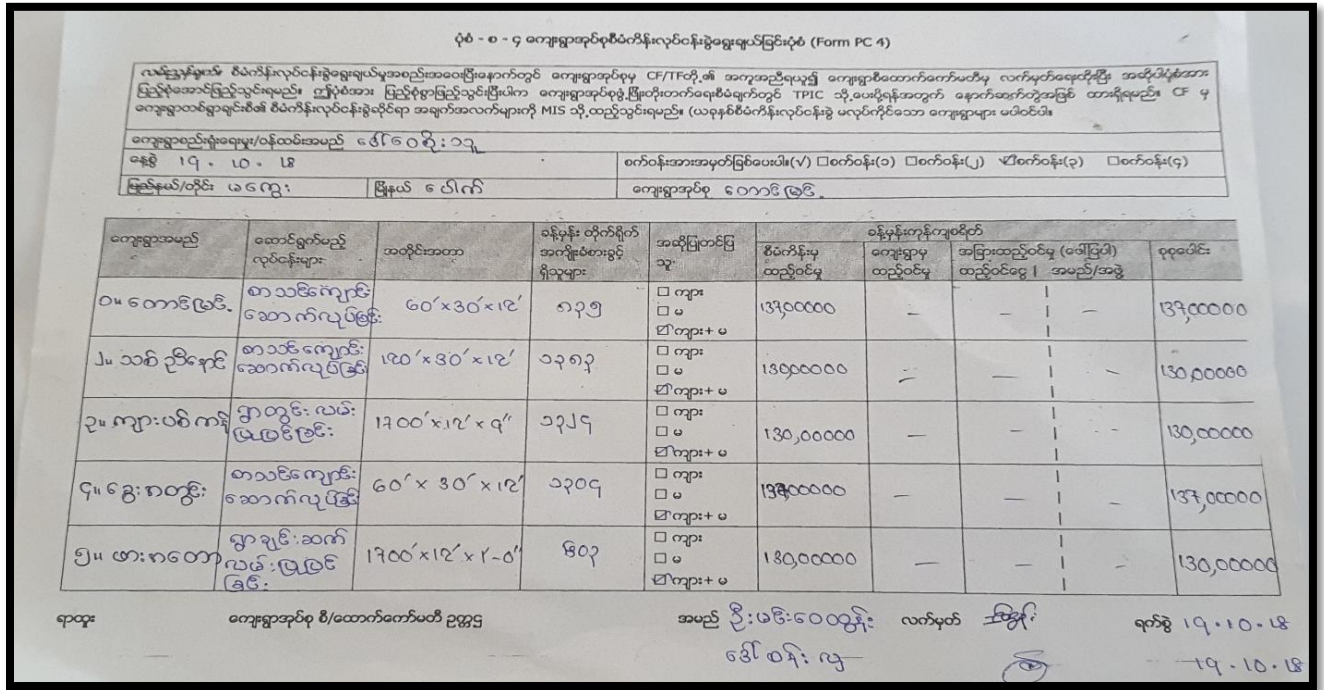 ပုံစံ - စ - ၄ ကျေးရွာအုပ်စုစီမံကိန်းလုပ်ငန်းခွဲရွေးချယ်ခြင်းပုံစံ (Form PC 4)
လမ်းညွှန်ချက်။ စီမံကိန်းလုပ်ငန်းခွဲရွေးချယ်မှုအစည်းအဝေးပြီးနောက်တွင် ကျေးရွာအုပ်စုမှ CF/TFတို့၏ အကူအညီရယူ၍ ကျေးရွာစီထောက်ကော်မတီမှ လက်မှတ်ရေးထိုးပြီး အဆိုပါပုံစံအား
ပြည့်စုံအောင်ဖြည့်သွင်းရမည်။ ဤပုံစံအား ပြည့်စုံစွာဖြည့်သွင်းပြီးပါက ကျေးရွာအုပ်စုဖွံ့ဖြိုးတိုးတက်ရေးစီမံချက်တွင် TPIC သို့ပေးပို့ရန်အတွက် နောက်ဆက်တွဲအဖြစ် ထားရှိရမည်။ CF မှ
ကျေးရွာတစ်ရွာချင်းစီ၏ စီမံကိန်းလုပ်ငန်းခွဲဆိုင်ရာ အချက်အလက်များကို MIS သို့ထည့်သွင်းရမည်။ (ယခုနှစ်စီမံကိန်းလုပ်ငန်းခွဲ မလုပ်ကိုင်သော ကျေးရွာများ မပါဝင်ပါ။
ကျေးရွာစည်းရုံးရေးမှူး/ဝန်ထမ်းအမည် ဒေါ်ဝေဝိုးသူ
နေ့စွဲ ၁၉.၁၀.၁၈ စက်ဝန်းအားအမှတ်ခြစ်ပေးပါ။(√) ☐စက်ဝန်း(၁) ☐စက်ဝန်း(၂) ☑စက်ဝန်း(၃) ☐စက်ဝန်း(၄)
ပြည်နယ်/တိုင်း မကွေး မြို့နယ် ပေါက် ကျေးရွာအုပ်စု တောင်မြင့်
ကျေးရွာအမည် ဆောင်ရွက်မည့် လုပ်ငန်းများ အတိုင်းအတာ ခန့်မှန်း တိုက်ရိုက် အကျိုးခံစားခွင့် ရှိသူများ အဆိုပြုတင်ပြ သူ ခန့်မှန်းကုန်ကျစရိတ်
စီမံကိန်းမှ ထည့်ဝင်မှု ကျေးရွာမှ ထည့်ဝင်မှု အခြားထည့်ဝင်မှု (ဖော်ပြပါ) ထည့်ဝင်ငွေ | အမည်/အဖွဲ့ စုစုပေါင်း
၁။ တောင်မြင့် စာသင်ကျောင်း ဆောက်လုပ်ခြင်း 60'×30'×12' ☐ ကျား ☐ မ ☑ ကျား+ မ 137,00000 – – – 137,00000
၂။ သစ်ညိုနောင် စာသင်ကျောင်း ဆောက်လုပ်ခြင်း 120'×30'×12' ☐ ကျား ☐ မ ☑ ကျား+ မ 130,00000 – – – 130,00000
၃။ ကျားပစ်ကန် ရွာတွင်းလမ်း ပြုပြင်ခြင်း 1700'×12'×9" ၁၃၂၄ ☐ ကျား ☐ မ ☑ ကျား+ မ 130,00000 – – – 130,00000
၄။ ခွေးတတွင်း စာသင်ကျောင်း ဆောက်လုပ်ခြင်း 60'×30'×12' ၁၃၀၄ ☐ ကျား ☐ မ ☑ ကျား+ မ 137,00000 – – – 137,00000
၅။ ဖားတတော ရွာချင်းဆက် လမ်းပြုပြင် ခြင်း 1700'×12'×1'-0" ☐ ကျား ☐ မ ☑ ကျား+ မ 130,00000 – – – 130,00000
ရာထူး ကျေးရွာအုပ်စု စီ/ထောက်ကော်မတီ ဥက္ကဋ္ဌ အမည် ဦးမင်းဝေထွန်း လက်မှတ် ရက်စွဲ ၁၉.၁၀.၁၈
ဒေါ်တန်းလှ ၁၉.၁၀.၁၈